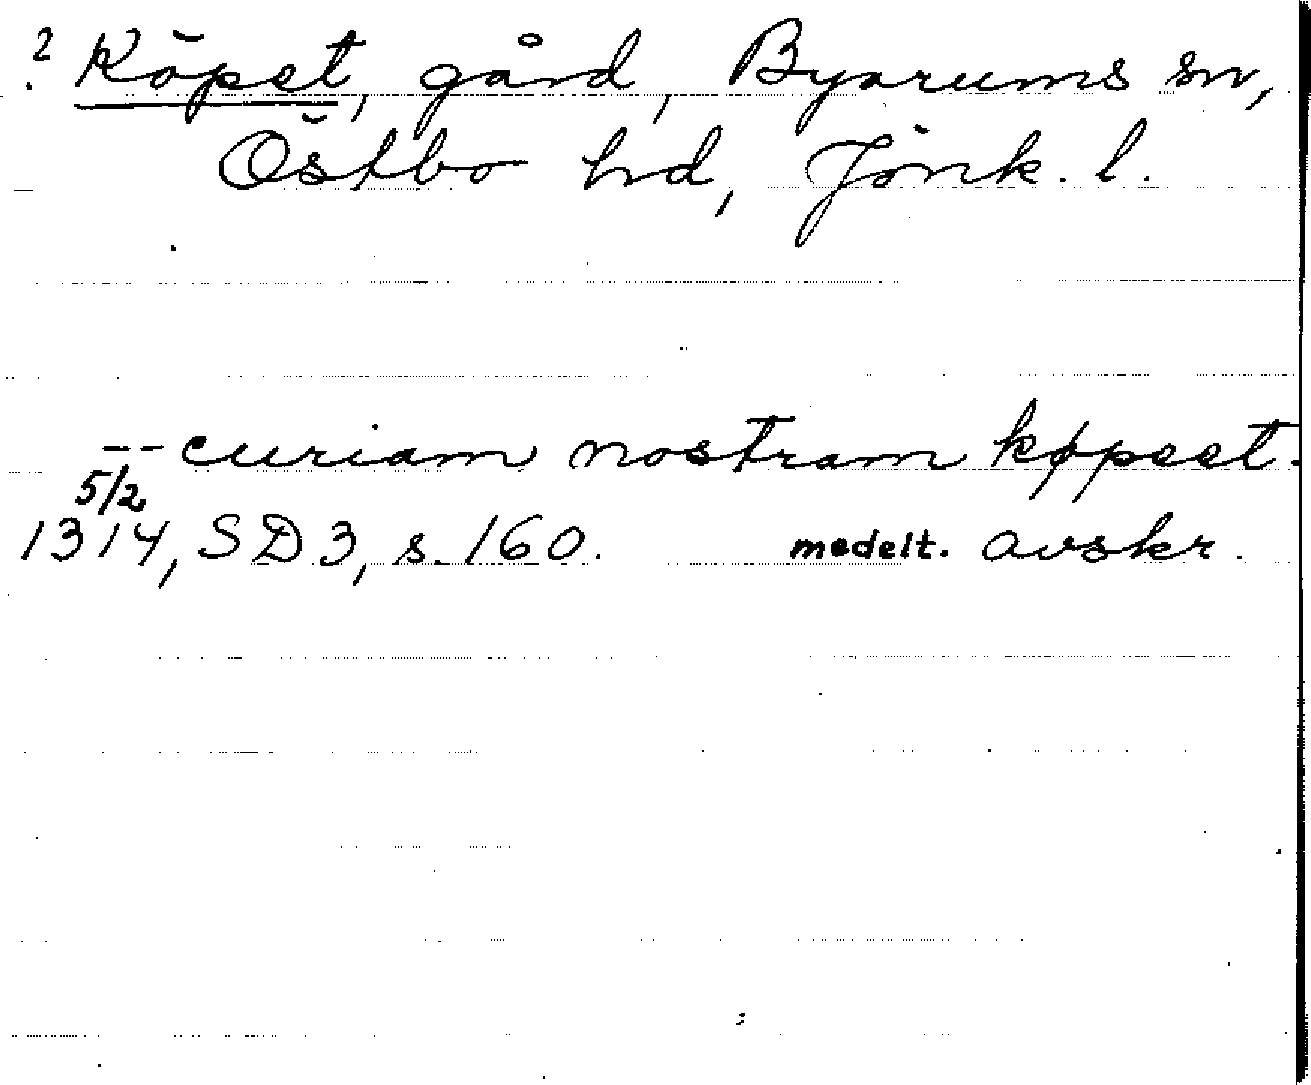 ? Köpet, gård, Byarums sn,
Östbo hd, Jönk. l.
-- curiam nostram køpeet.
5/2
1314, SD 3, s. 160. medelt. avskr.